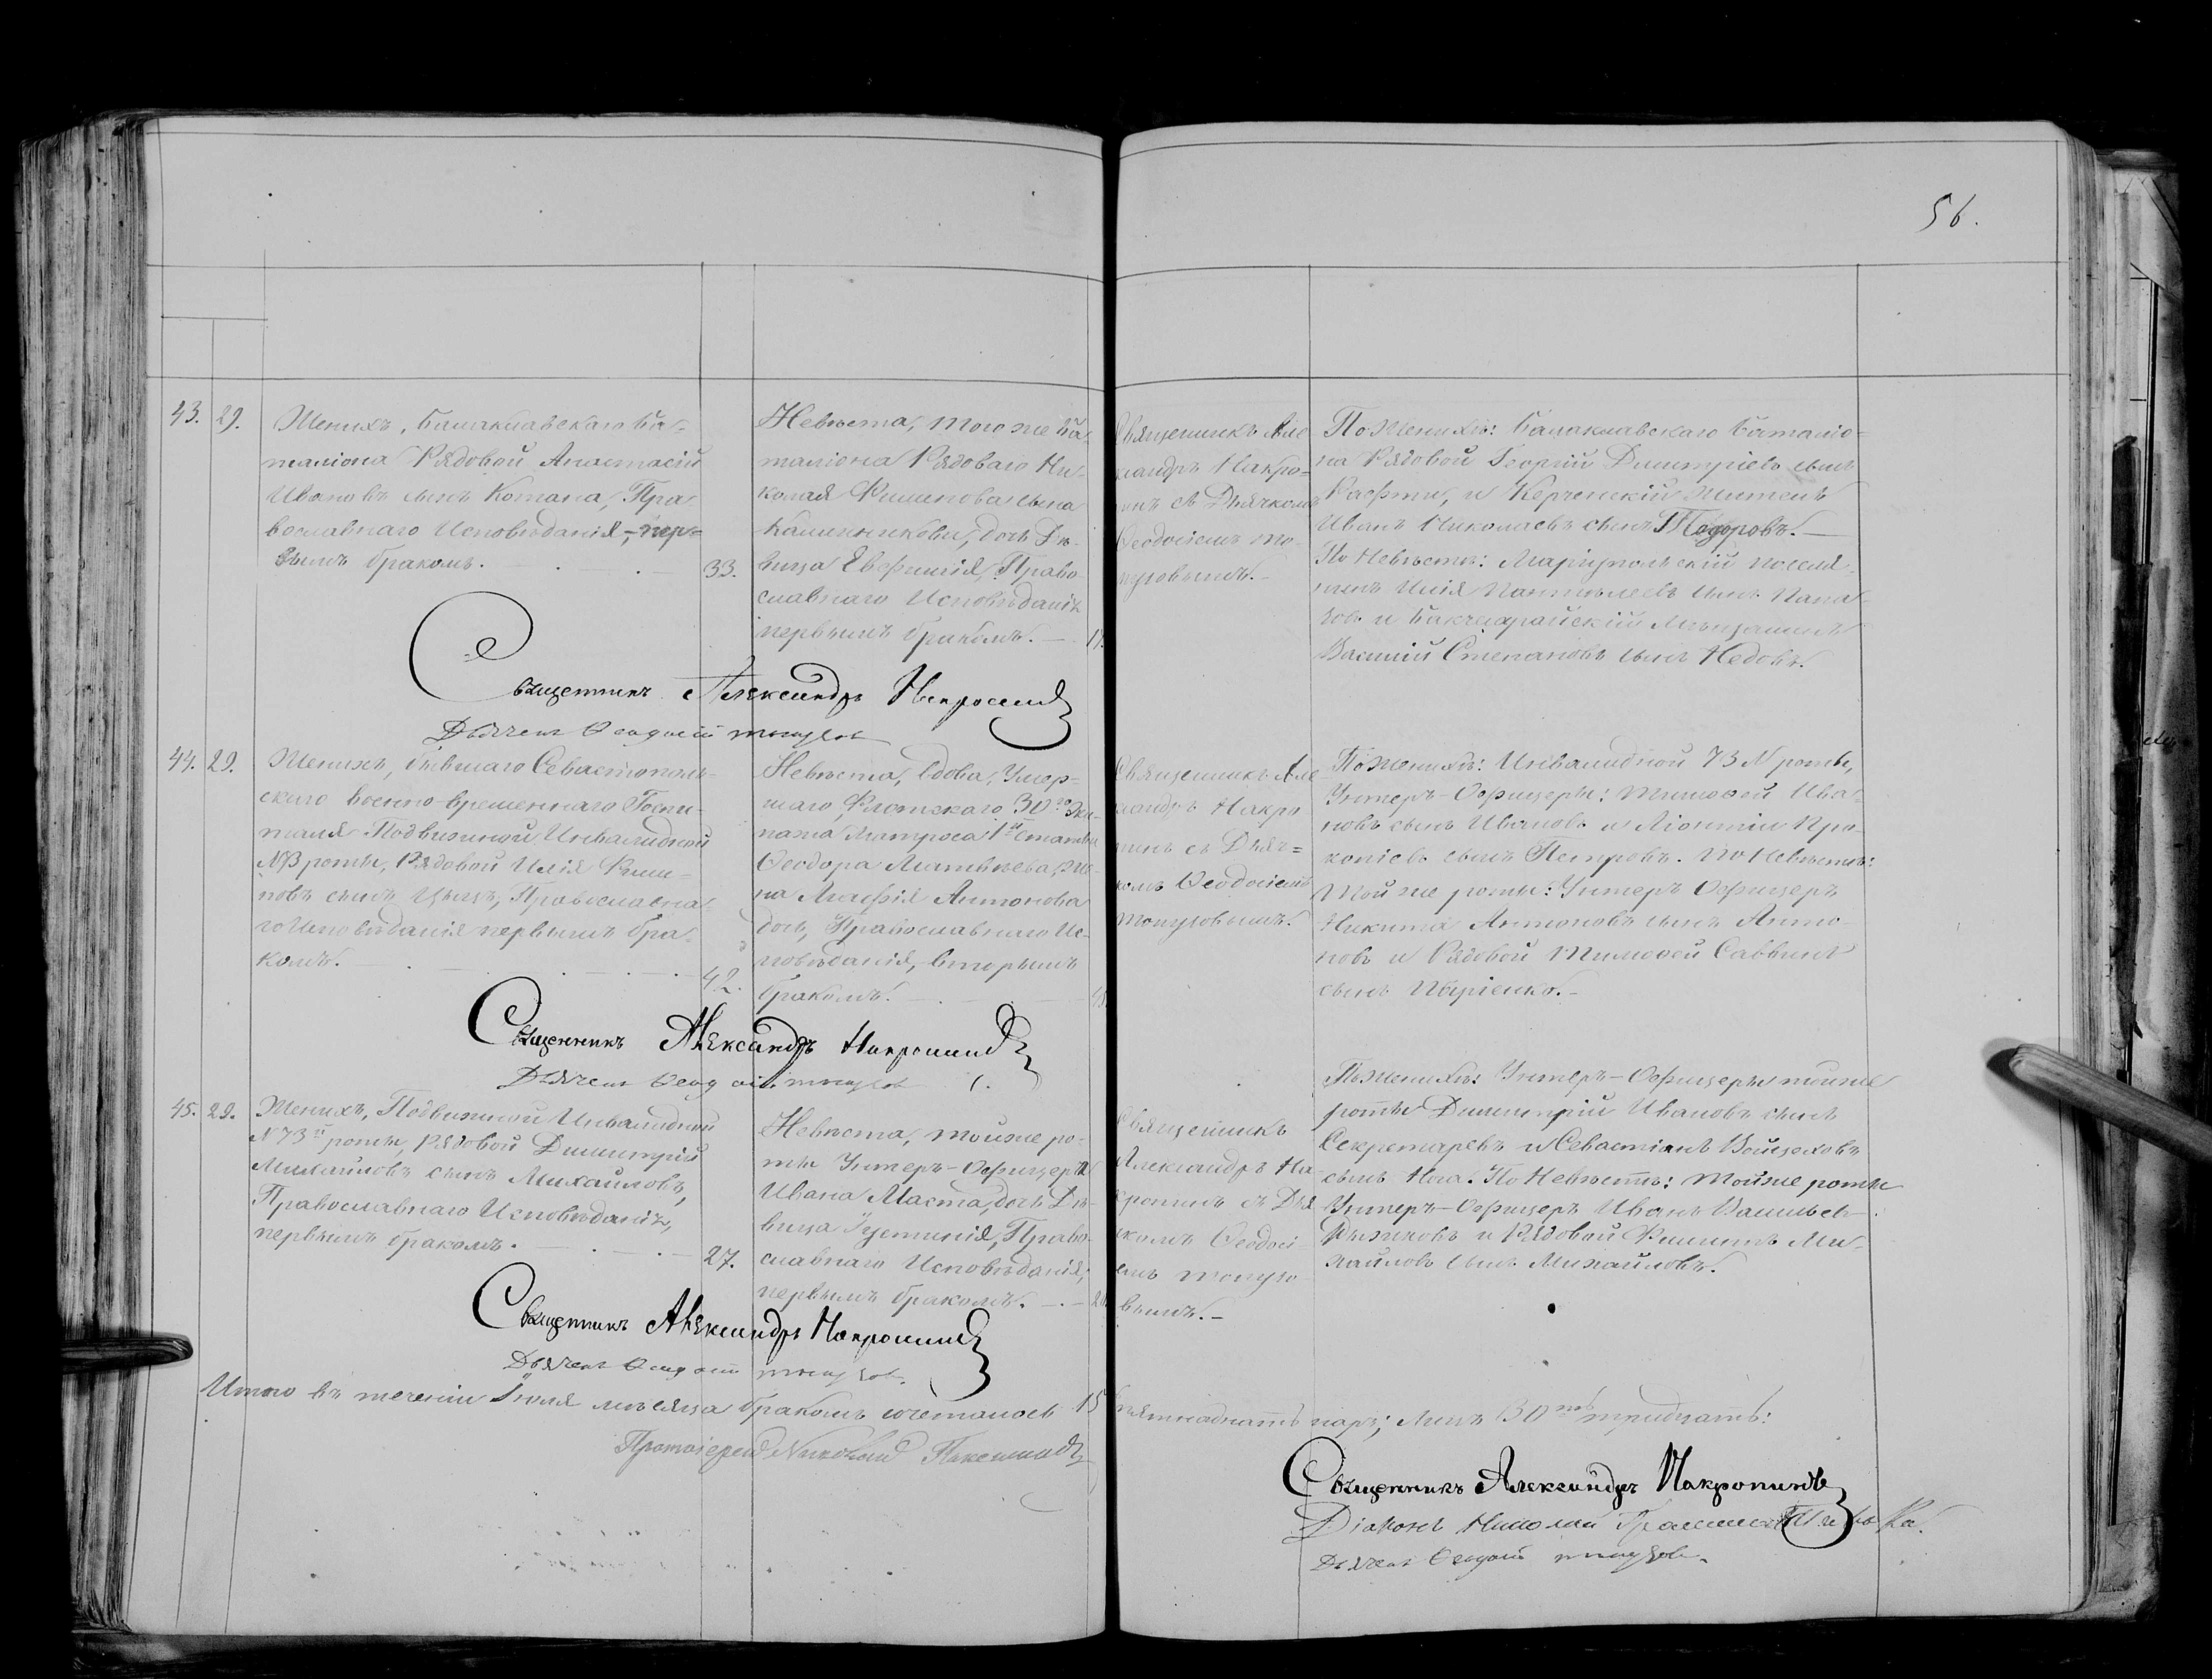 56.
43. 29.
Женихъ, Балаклавскаго Ба-
таліона Рядовой Анастасій
Ивановъ сынъ Котана, Пра-
вославнаго Исповѣданія, пер-
вымъ бракомъ.
33.
Невѣста, того же Ба-
таліона Рядоваго Ни-
колая Филипова сына
дочь Дѣ-
вица Евфимія, Право-
славнаго Исповѣданія
первымъ бракомъ.
Священникъ Але-
ксандръ Накро-
инъ съ Дьячкомъ
Ѳеодосіемъ То-
пузовымъ.
По Женихѣ: Балаклавскаго Баталіо-
на Рядовой Георгій Димитріевъ сынъ
и Керченскій житель
Иванъ Николаевъ сынъ Тодоровъ.
По Невѣстѣ: Маріупольскій поселя-
нинъ Илія сынъ Папа-
зовъ и Бакчисарайскій Мѣщанинъ
Василій Степановъ сынъ Недовъ.
Священникъ Александръ Накропинъ
Дьячекъ Ѳеодосій Топузовъ
44. 29.
Женихъ, бывшаго Севастополь-
скаго военно-временнаго Госпи-
таля Подвижной Инвалидной
роты, Рядовой Илія Фили-
повъ сынъ Православна-
го Исповѣданія первымъ бра-
комъ.
42.
Невѣста, вдова, Умер-
шаго Флотскаго 30го Эки-
пажа Матроса 1й статьи
Ѳеодора Матвѣева, же-
на Антонова
дочь, Православнаго Ис-
повѣданія, вторымъ
бракомъ.
Священникъ Але-
ксандръ Накро
пинъ съ Дьяч=
комъ Ѳеодосіемъ
Топузовымъ.
По Женихѣ: Инвалидной 73 N роты,
Унтеръ-Офицеры: Тимоѳей Ива-
новъ сынъ Ивановъ и Леонтій Про-
копіевъ сынъ Петровъ. По Невѣстѣ:
Той же роты: Унтеръ Офицеръ
Никита Антоновъ сынъ Анто-
новъ и Рядовой Тимоѳей Саввинъ
сынъ
Священникъ Александръ Накропинъ
Дьячекъ Ѳеодосій Топузовъ
45. 29.
Женихъ, Подвижной Инвалидной
N 73й роты, Рядовой Димитрій
Михайловъ сынъ Михайловъ,
Православнаго Исповѣданія,
первымъ бракомъ.
27.
Невѣста, той же ро-
ты Унтеръ-Офицера
Ивана Маста, дочь Дѣ-
вица Іустинія, Право-
славнаго Исповѣданія,
первымъ бракомъ.
Священникъ
Александръ На-
кропинъ съ Дья
чкомъ Ѳеодосі-
емъ Топузо-
вымъ.
По Женихѣ: Унтеръ-Офицеры той же
роты Димитрій Ивановъ сынъ
Секретаревъ и Севастіанъ Войцеховъ
сынъ Нога. По Невѣстѣ: Той же роты
Унтеръ-Офицеръ Иванъ Васильевъ
Рыжковъ и Рядовой Филиппъ Ми-
хайловъ сынъ Михайловъ.
Священникъ Александръ Накропинъ
Дьячекъ Ѳеодосій Топузовъ.
Итого въ теченіи Іюля мѣсяца бракомъ сочеталось 15 пятнадцать паръ; Лицъ 30ть тридцать:
Протоіерей
Священникъ Александръ Накропинъ
Діаконъ Николай
Дьячекъ Ѳеодосій Топузовъ.